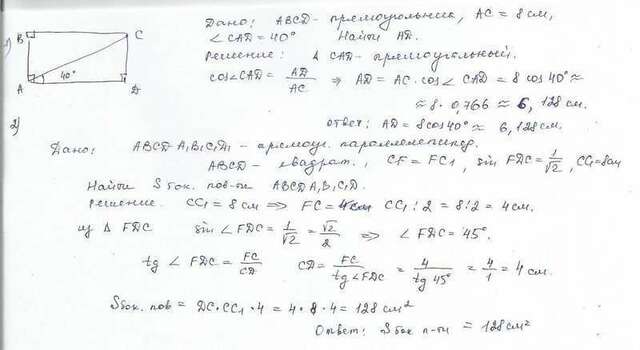 1) Дано: ABCD - прямоугольник, AC = 8 см,
∠ CAD = 40° Найти AD.
Решение: Δ CAD - прямоугольный.
cos∠CAD = AD/AC ⇒ AD = AC · cos∠ CAD = 8 cos 40° ≈
≈ 8 · 0,766 ≈ 6,128 см.
Ответ: AD = 8cos40° ≈ 6,128 см.
B C
A 40° D
2)
Дано: ABCD A₁B₁C₁D₁ - прямоуг. параллелепипед.
ABCD - квадрат., CF = FC₁, sin FDC = 1/√2, CC₁=8см
Найти S бок. пов-ти ABCDA₁B₁C₁D.
Решение. CC₁ = 8 см ⇒ FC = CC₁ : 2 = 8 : 2 = 4 см.
из Δ FDC sin ∠ FDC = 1/√2 = √2/2 ⇒ ∠ FDC = 45°.
tg ∠ FDC = FC/CD CD = FC/tg∠FDC = 4/tg 45° = 4/1 = 4 см.
Sбок. пов = DC · CC₁ · 4 = 4 · 8 · 4 = 128 см²
Ответ: Sбок п-ти = 128 см²